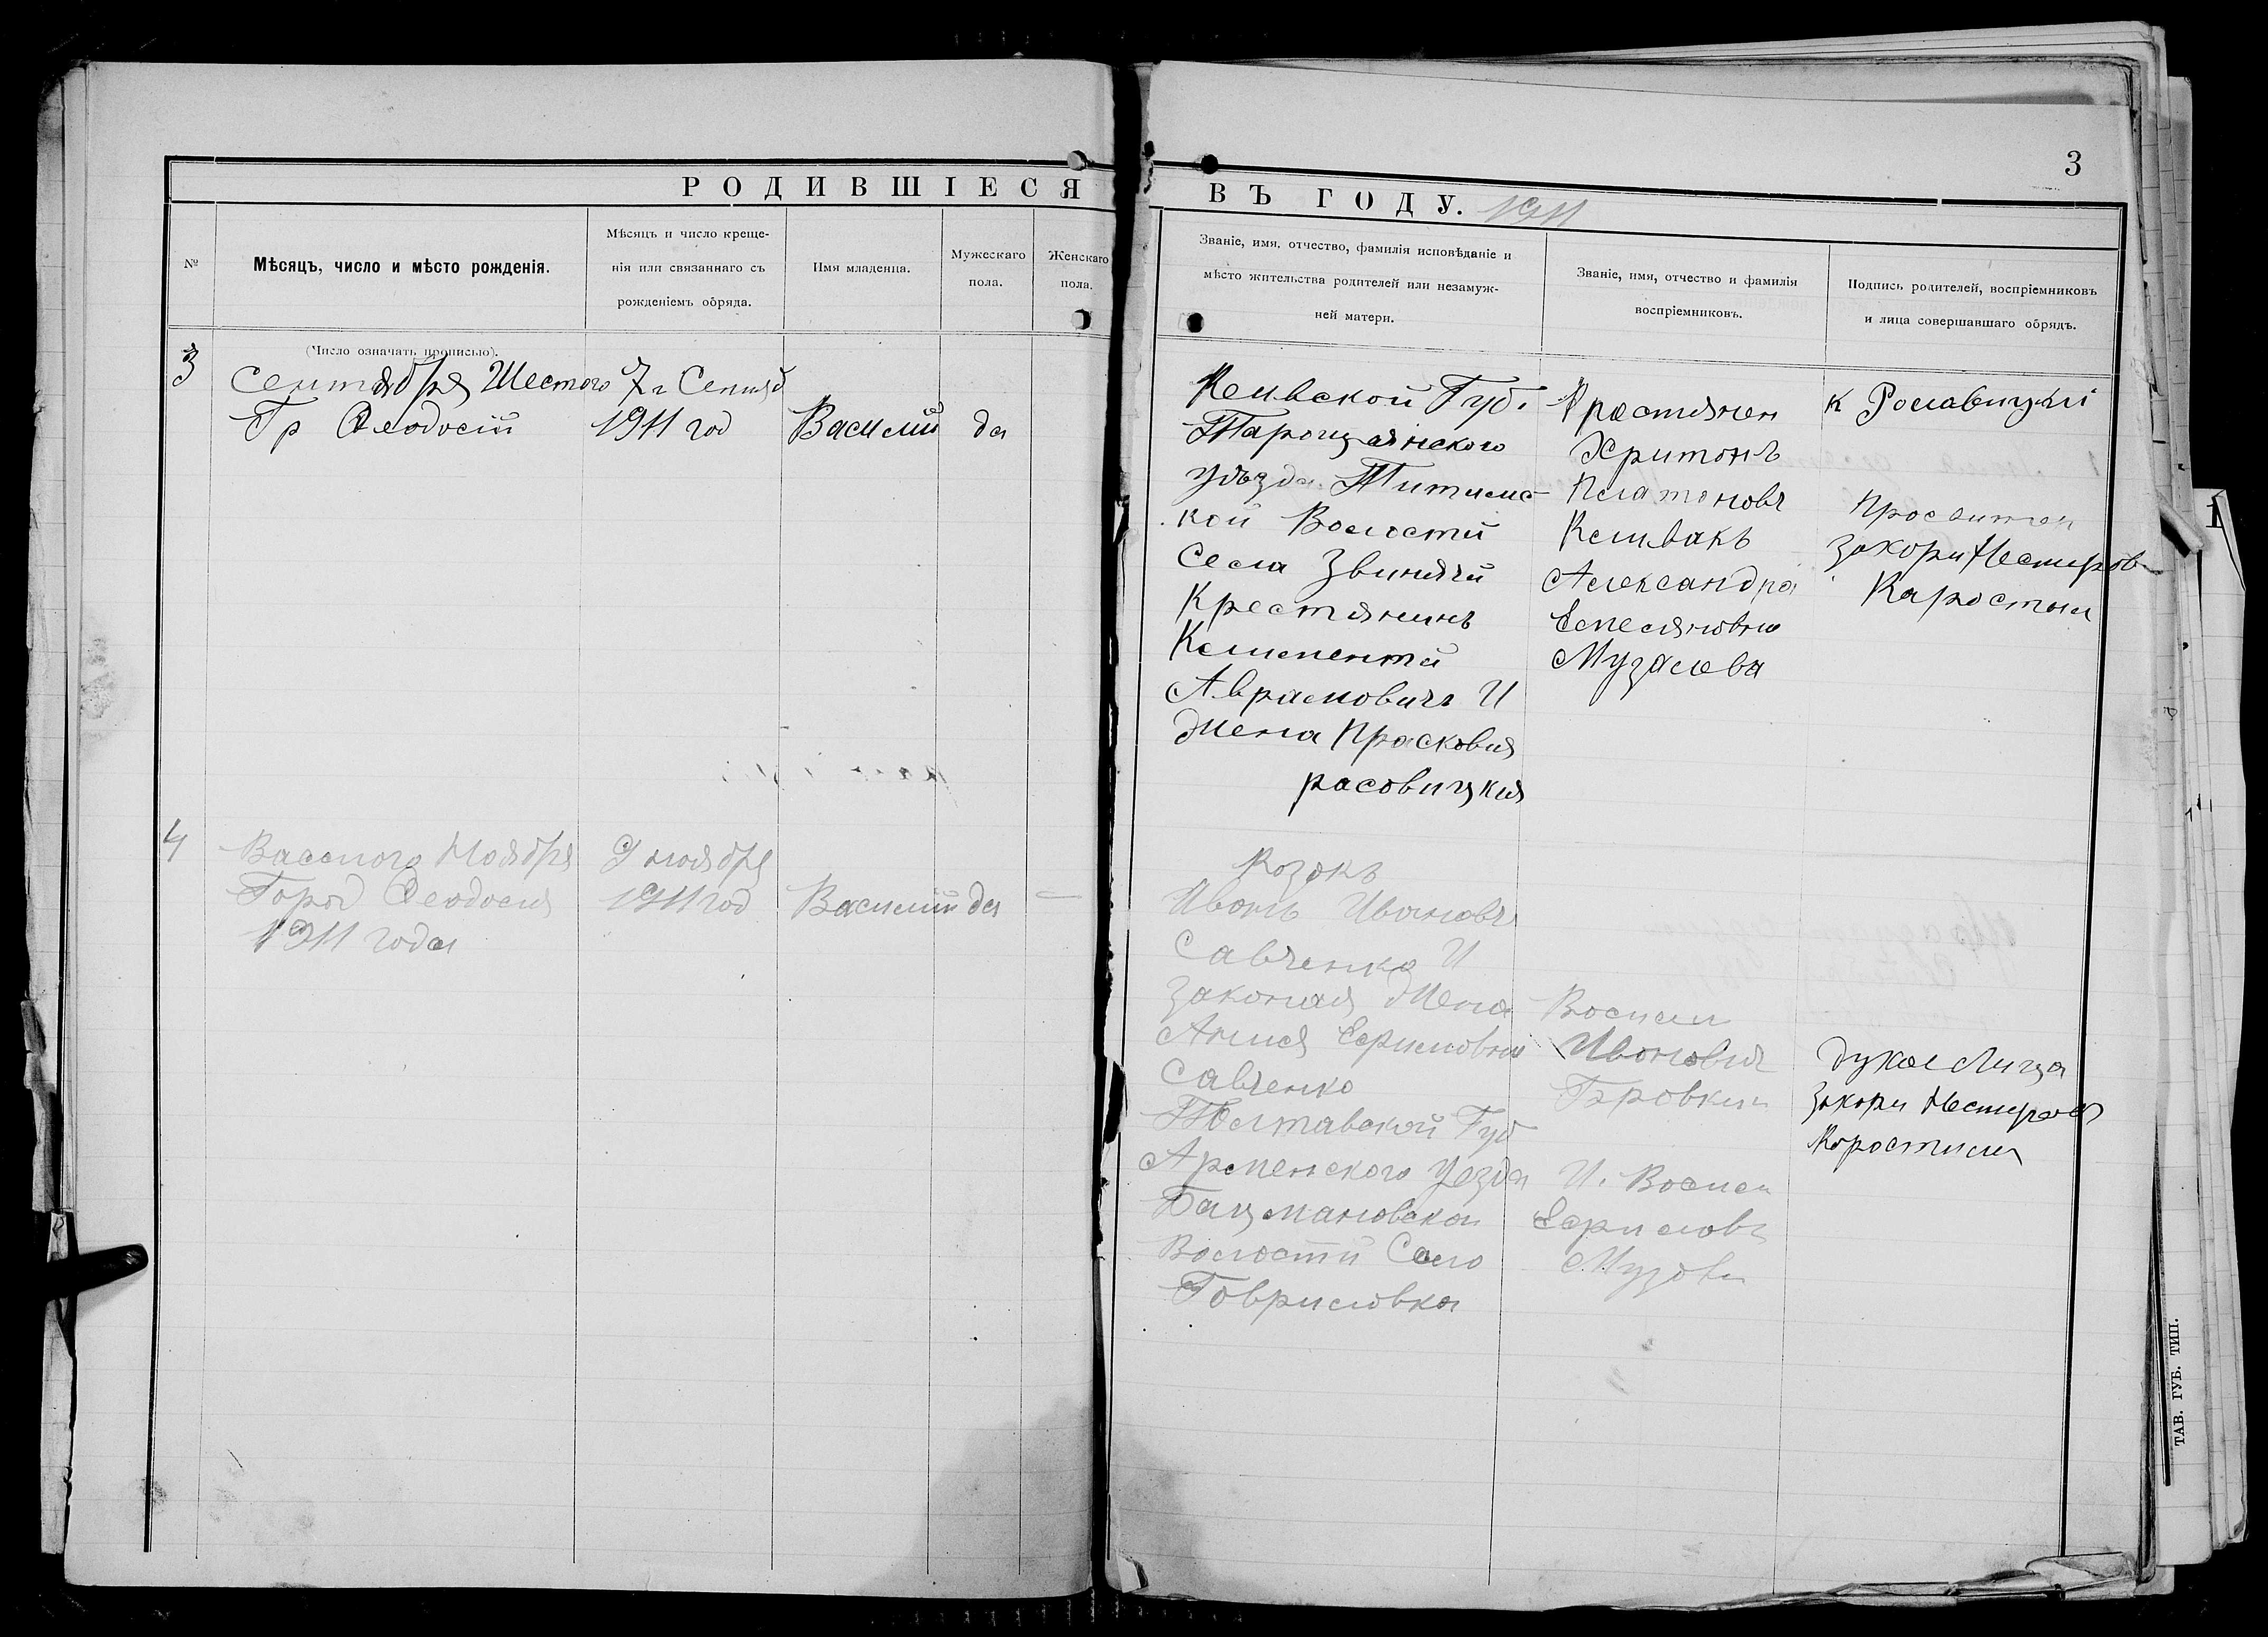 3
РОДИВШІЕСЯ ВЪ ГОДУ. 1911
№
Мѣсяцъ, число и мѣсто рожденія.
Мѣсяцъ и число креще-
нія или связаннаго съ
рожденіемъ обряда.
Имя младенца.
Мужескаго
пола.
Женскаго
пола.
Званіе, имя, отчество, фамилія исповѣданіе и
мѣсто жительства родителей или незамуж-
ней матери.
Званіе, имя, отчество и фамилія
воспріемниковъ.
Подпись родителей, воспріемниковъ
и лица совершавшаго обрядъ.
(Число означать прописью).
3
Сентября Шестого
Гр Феодосіи
7 г Сентяб
1911 год
Василий
да
Кеивской Губ.
Тарощанского
уѣзда
кой Волости
Села Звинячи
Крестянинъ
Клементи
Аврамовичъ И
Жена Прасковия
расовицкия
Харитонъ
Платоновъ
Кливакъ
Александра
Емеляновна
Музалева
к
захори Нестеров
Каростыл
4
Васмого Ноября
Город Феодосия
1911 года
9 ноября
1911 год
Василий
да
—
Козакъ
Иванъ Ивановъ
Савченко И
законая Жена
Савченко
Полтавской Губ
уезда
Бацмановскои
Волости Село
Говриловка
Василии
Ивановичъ
Бровкин
И. Васили
духое Лица
захори Нестеров
Коростили
ТАВ. ГУБ. ТИП.